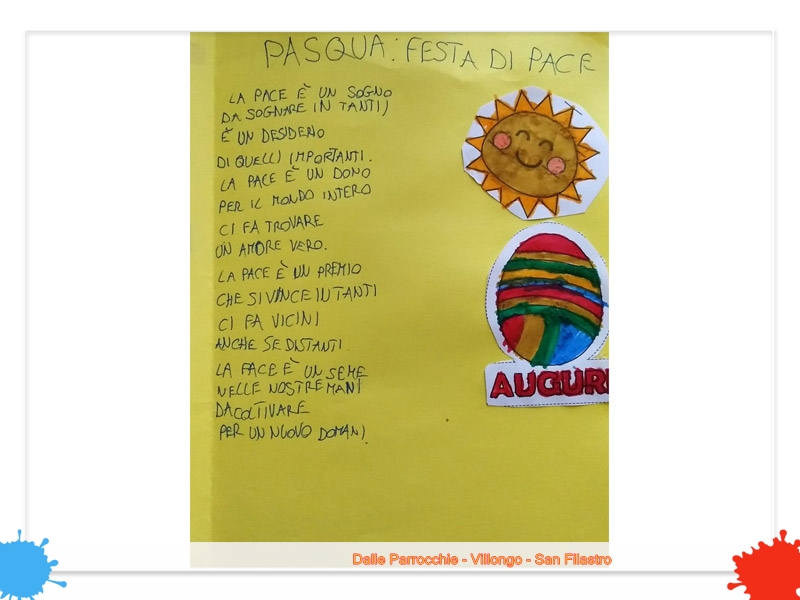 PASQUA: FESTA DI PACE
LA PACE È UN SOGNO
DA SOGNARE IN TANTI,
È UN DESIDERIO
DI QUELLI IMPORTANTI.
LA PACE È UN DONO
PER IL MONDO INTERO
CI FA TROVARE
UN AMORE VERO.
LA PACE È UN PREMIO
CHE SI VINCE IN TANTI
CI FA VICINI
ANCHE SE DISTANTI.
LA PACE È UN SEME
NELLE NOSTRE MANI
DA COLTIVARE
PER UN NUOVO DOMANI.
AUGURI
Dalle Parrocchie - Villongo - San Filastro